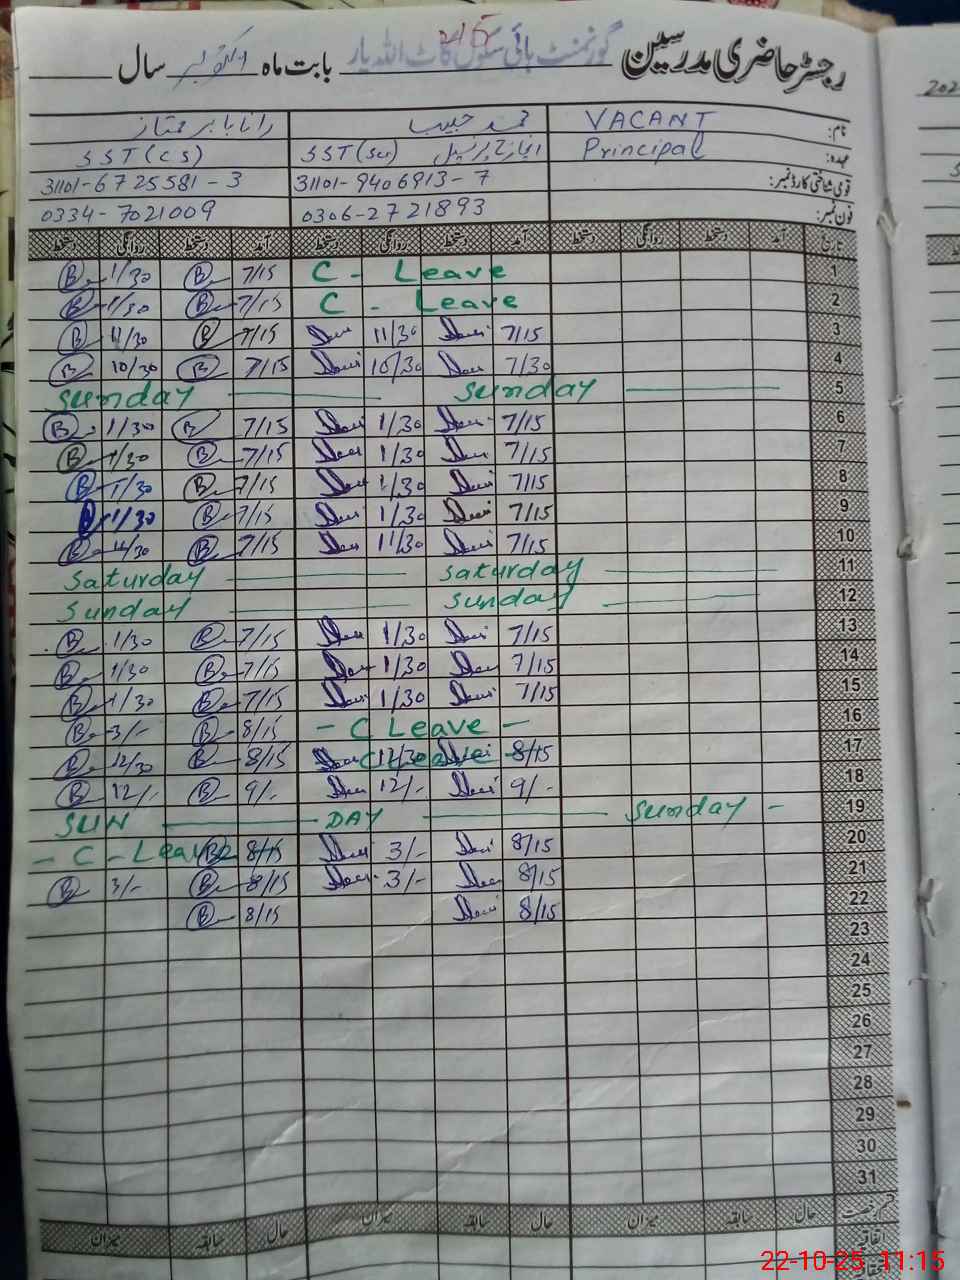 رجسٹر حاضری مدرسین گورنمنٹ ہائی سکول کاٹ اللہ یار بابت ماہ اکتوبر سال
نام: VACANT محمد حبیب رانا بابر ممتاز
عہدہ: Principal انچارج پرنسپل SST(Sci) SST(CS)
قومی شناختی کارڈ نمبر: 31101-9406913-7 31101-6725581-3
فون نمبر: 0306-2721893 0334-7021009
تاریخ آمد دستخط روانگی دستخط آمد دستخط روانگی دستخط آمد دستخط روانگی دستخط
1 C - Leave 7/15 B 1/30 B
2 C - Leave 7/15 B 1/30 B
3 7/15 11/30 7/15 B 11/30 B
4 7/30 10/30 7/15 B 10/30 B
5 Sunday Sunday
6 7/15 1/30 7/15 B 1/30 B
7 7/15 1/30 7/15 B 1/30 B
8 7/15 1/30 7/15 B 1/30 B
9 7/15 1/30 7/15 B 1/30
10 7/15 11/30 7/15 B 11/30 B
11 Saturday Saturday
12 Sunday Sunday
13 7/15 1/30 7/15 B 1/30 B
14 7/15 1/30 7/15 B 1/30 B
15 7/15 1/30 7/15 B 1/30 B
16 - C Leave - 8/15 B 3/- B
17 8/15 C Leave 12/30 8/15 B 12/30 B
18 9/- 12/- 9/- B 12/- B
19 SUN DAY Sunday -
20 8/15 3/- 8/15 B - C - Leave
21 8/15 3/- 8/15 B 3/- B
22 8/15 8/15 B
23
24
25
26
27
28
29
30
31
قسم رخصت حال سابقہ میزان حال سابقہ میزان حال سابقہ میزان
اتفاقیہ
22-10-25 11:15